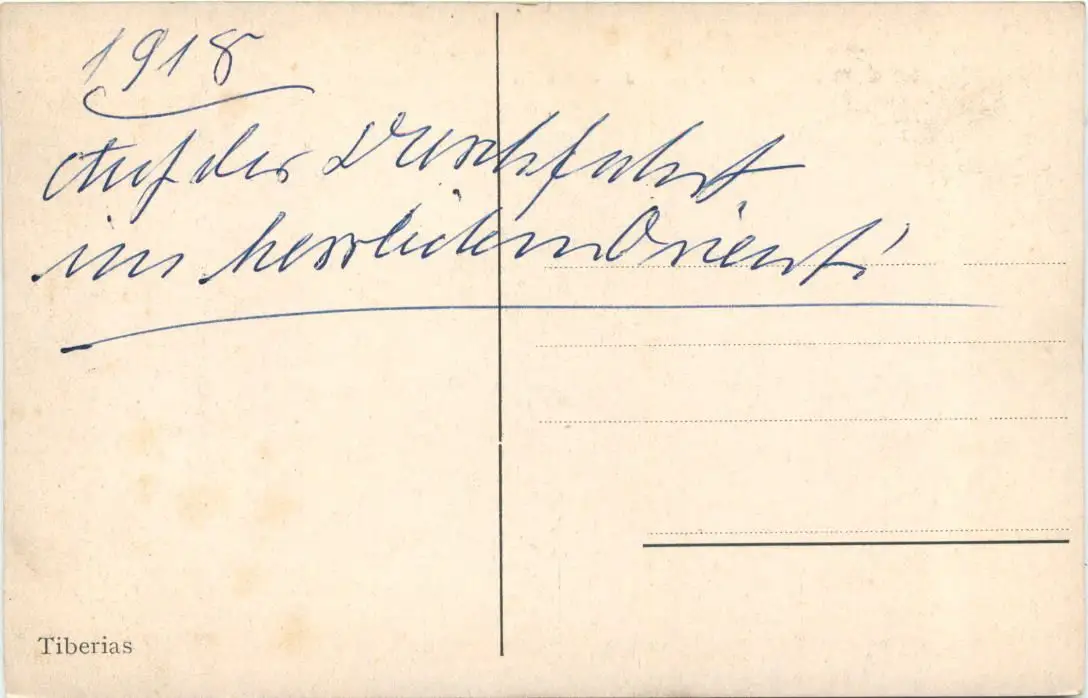 1918
Auf der Durchfahrt
im herrlichen Orient!
Tiberias